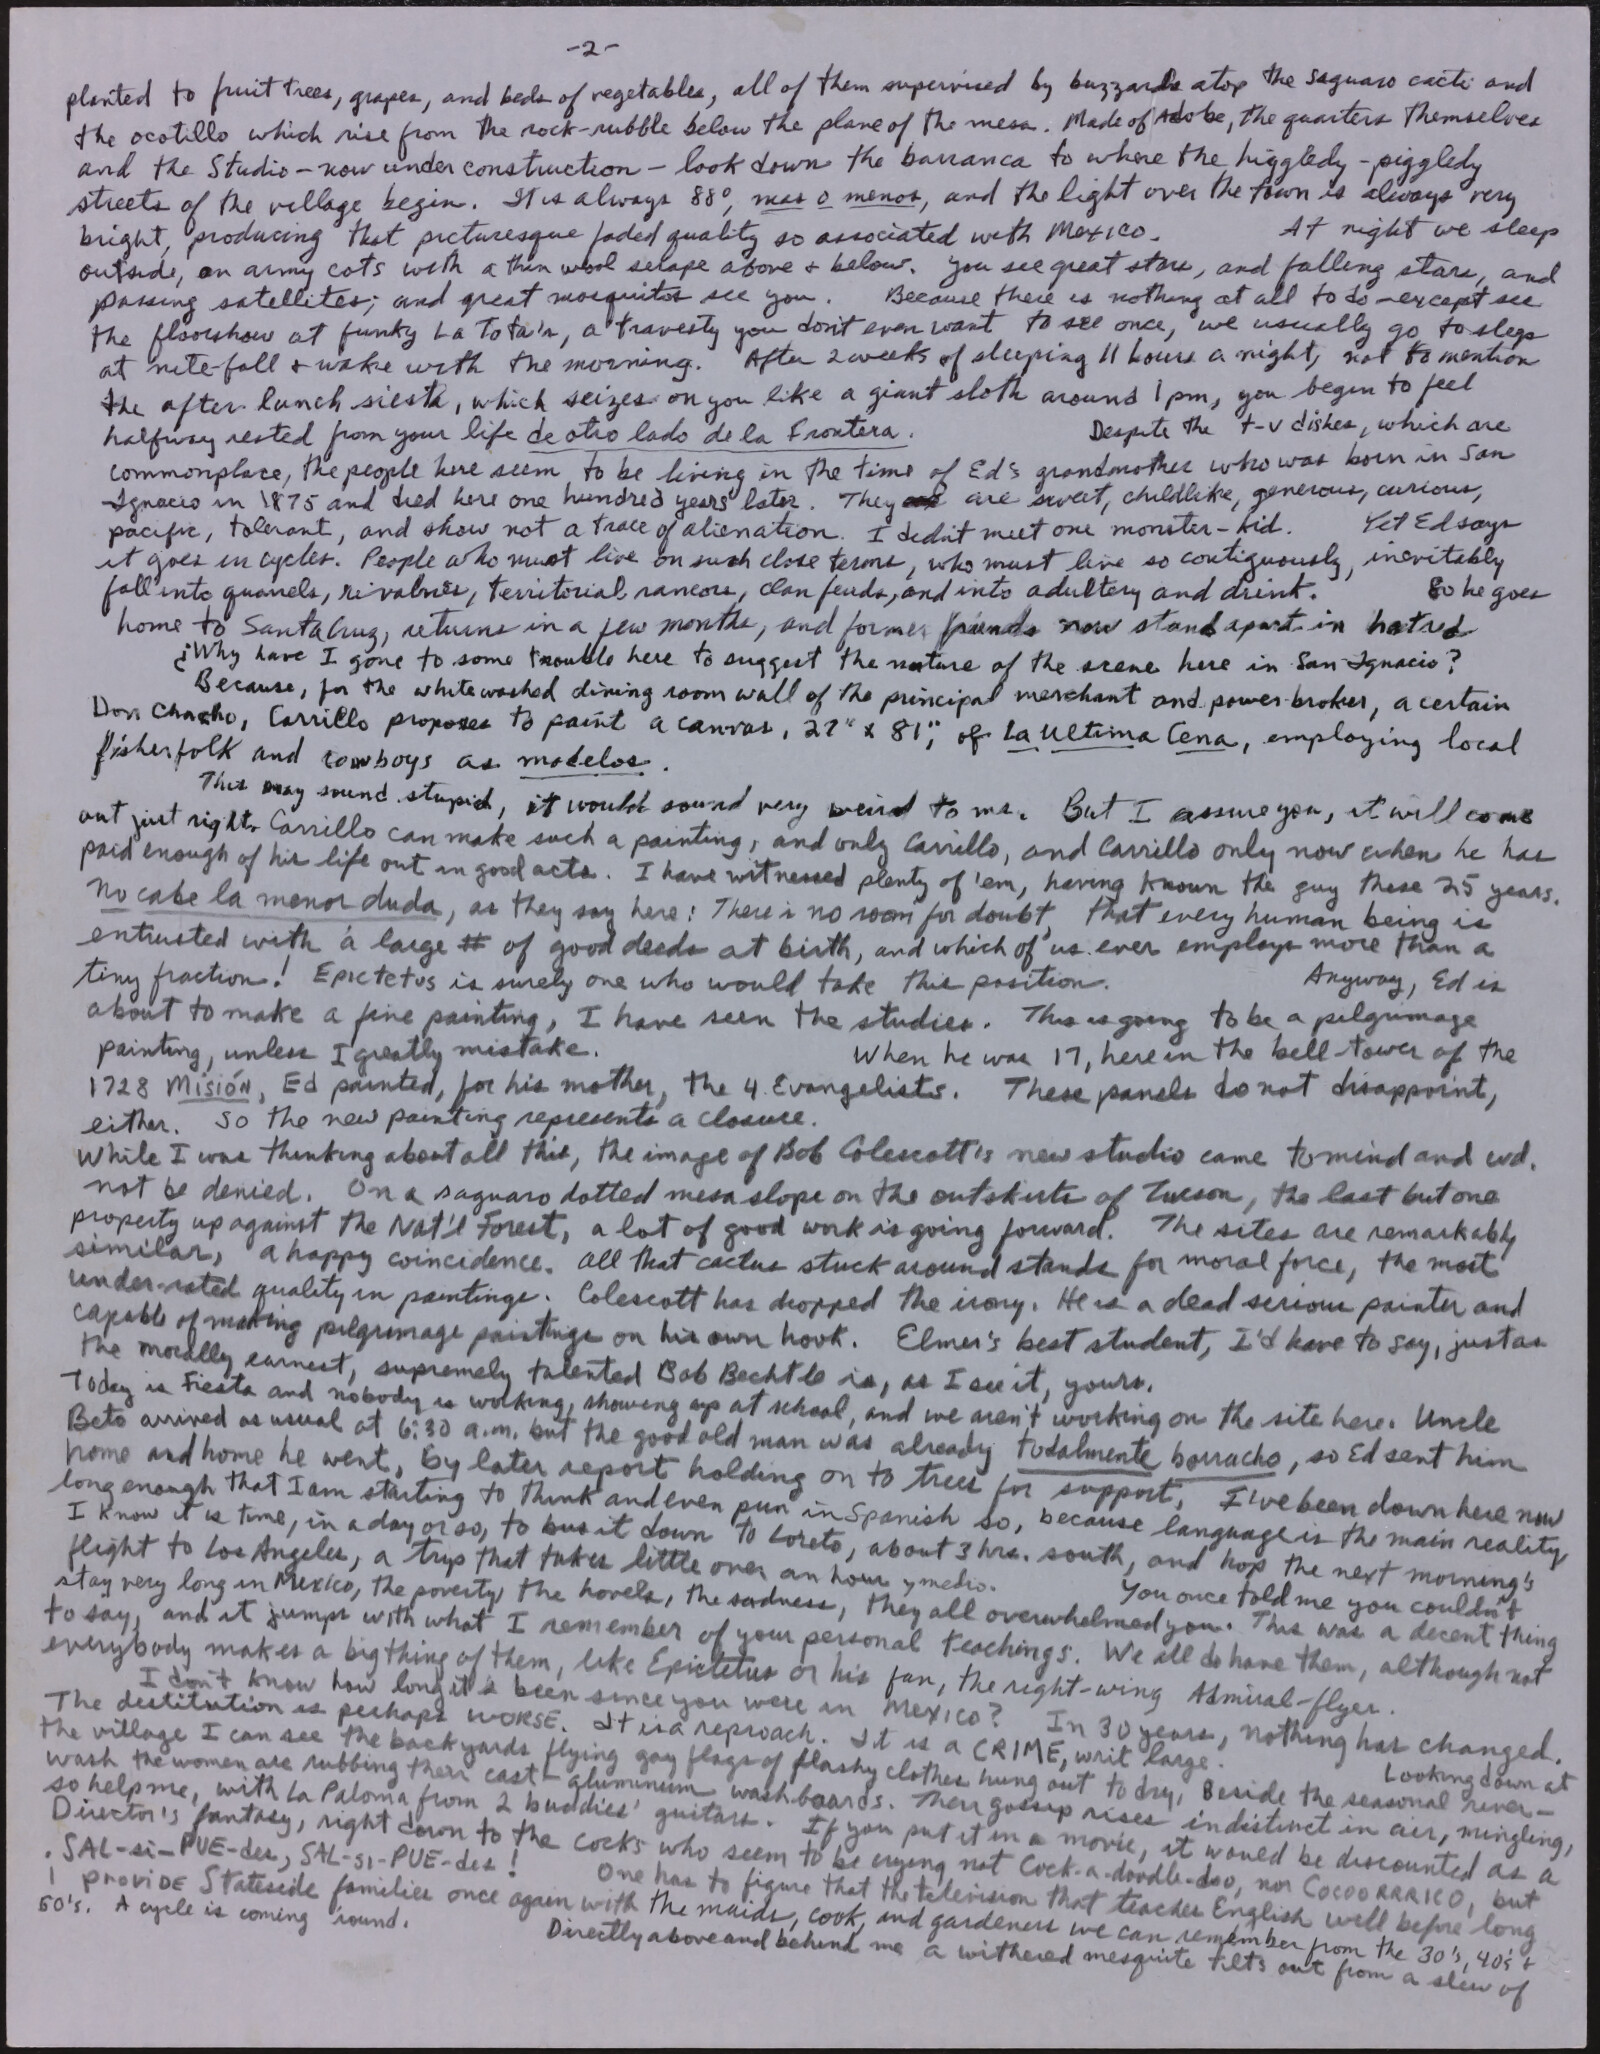 -2-
planted to fruit trees, grapes, and beds of vegetables, all of them supervised by buzzards atop the saguaro cacti and
the ocotillo which rise from the rock-rubble below the plane of the mesa. Made of Adobe, the quarters themselves
and the Studio - now under construction - look down the barranca to where the higgledy-piggledy
streets of the village begin. It is always 88°, mas o menos, and the light over the town is always very
bright, producing that picturesque faded quality so associated with Mexico. At night we sleep
outside, on army cots with a thin wool serape above & below. You see great stars, and falling stars, and
passing satellites; and great mosquitos see you. Because there is nothing at all to do - except see
the floorshow at funky La Tota's, a travesty you don't even want to see once, we usually go to sleep
at nite-fall & wake with the morning. After 2 weeks of sleeping 11 hours a night, not to mention
the after lunch siesta, which seizes on you like a giant sloth around 1 pm, you begin to feel
halfway rested from your life de otro lado de la Frontera. Despite the t-v dishes, which are
commonplace, the people here seem to be living in the time of Ed's grandmother who was born in San
Ignacio in 1875 and died here one hundred years later. They are sweet, childlike, generous, curious,
pacific, tolerant, and show not a trace of alienation. I didn't meet one monster-kid. Yet Ed says
it goes in cycles. People who must live on such close terms, who must live so contiguously, inevitably
fall into quarrels, rivalries, territorial rancors, clan feuds, and into adultery and drink. So he goes
home to Santa Cruz, returns in a few months, and former friends now stand apart in hatred.
¿Why have I gone to some trouble here to suggest the nature of the scene here in San Ignacio?
Because, for the whitewashed dining room wall of the principal merchant and power-broker, a certain
Don Chacho, Carrillo proposes to paint a canvas, 27" x 81", of La Ultima Cena, employing local
fisherfolk and cowboys as modelos.
This may sound stupid, it would sound very weird to me. But I assure you, it will come
out just right. Carrillo can make such a painting, and only Carrillo, and Carrillo only now when he has
paid enough of his life out in good acts. I have witnessed plenty of 'em, having known the guy these 25 years.
No cabe la menor duda, as they say here: There is no room for doubt, that every human being is
entrusted with a large # of good deeds at birth, and which of us ever employs more than a
tiny fraction! Epictetus is surely one who would take this position. Anyway, Ed is
about to make a fine painting, I have seen the studies. This is going to be a pilgrimage
painting, unless I greatly mistake. When he was 17, here in the bell-tower of the
1728 Misión, Ed painted, for his mother, the 4 Evangelists. These panels do not disappoint,
either. So the new painting represents a closure.
While I was thinking about all this, the image of Bob Colescott's new studio came to mind and wd.
not be denied. On a saguaro dotted mesa slope on the outskirts of Tucson, the last but one
property up against the Nat'l Forest, a lot of good work is going forward. The sites are remarkably
similar, a happy coincidence. All that cactus stuck around stands for moral force, the most
under-rated quality in paintings. Colescott has dropped the irony. He is a dead serious painter and
capable of making pilgrimage paintings on his own hook. Elmer's best student, I'd have to say, just as
the morally earnest, supremely talented Bob Bechtle is, as I see it, yours.
Today is Fiesta and nobody is working, showing up at school, and we aren't working on the site here. Uncle
Beto arrived as usual at 6:30 a.m. but the good old man was already todalmente borracho, so Ed sent him
home and home he went, by later report holding on to trees for support. I've been down here now
long enough that I am starting to think and even pun in Spanish so, because language is the main reality,
I know it is time, in a day or so, to bus it down to Loreto, about 3 hrs. south, and hop the next morning's
flight to Los Angeles, a trip that takes little over an hour y medio. You once told me you couldn't
stay very long in Mexico, the poverty, the hovels, the sadness, they all overwhelmed you. This was a decent thing
to say, and it jumps with what I remember of your personal teachings. We all do have them, although not
everybody makes a big thing of them, like Epictetus or his fan, the right-wing Admiral-flyer.
I don't know how long it's been since you were in Mexico? In 30 years, nothing has changed.
The destitution is perhaps WORSE. It is a reproach. It is a CRIME, writ large. Looking down at
the village I can see the backyards flying gay flags of flashy clothes hung out to dry. Beside the seasonal river-
wash the women are rubbing their cast-aluminum washboards. Their gossip rises indistinct in air, mingling,
so help me, with La Paloma from 2 buddies' guitars. If you put it in a movie, it would be discounted as a
Director's fantasy, right down to the cocks who seem to be crying not Cock-a-doodle-doo, nor COCOORRRICO, but
SAL-si-PUE-des, SAL-si-PUE-des! One has to figure that the television that teaches English will before long
provide Stateside families once again with the maids, cook, and gardeners we can remember from the 30's, 40's &
50's. A cycle is coming 'round. Directly above and behind me a withered mesquite tilts out from a slew of